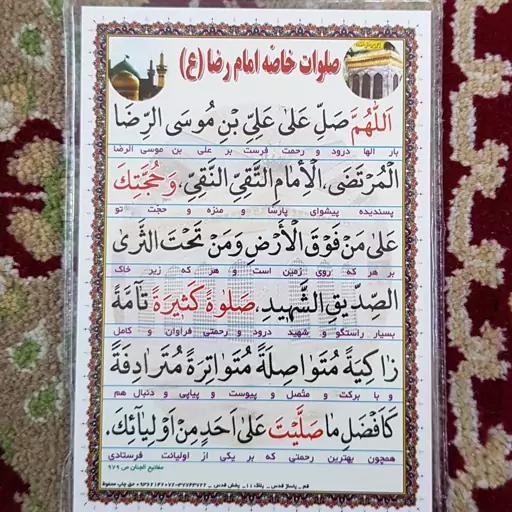 صلوات خاصه امام رضا (ع)
اَللّهُمَّ صَلِّ عَلیٰ عَلِيِّ بْنِ مُوسَی الرِّضَا
بار الها درود و رحمت فرست بر علی بن موسی الرضا
الْمُرْتَضَی، الْاِمَامِ التَّقِيِّ النَّقِيِّ، وَ حُجَّتِكَ
پسندیده پیشوای پارسا و منزه و حجت تو
عَلیٰ مَنْ فَوْقَ الْاَرْضِ وَ مَنْ تَحْتَ الثَّریٰ
بر هر که روی زمین است و هر که زیر خاک
الصِّدّیقِ الشَّهیدِ، صَلوٰةً كَثیرَةً تٰآمَّةً
بسیار راستگو و شهید درود و رحمتی فراوان و کامل
زٰاكِیَةً مُتَوٰاصِلَةً مُتَوٰاتِرَةً مُتَرٰادِفَةً
و با برکت و متصل و پیوست و پیاپی و دنبال هم
كَاَفْضَلِ مٰا صَلَّیْتَ عَلیٰ اَحَدٍ مِنْ اَوْلِیٰآئِكَ.
همچون بهترین رحمتی که بر یکی از اولیائت فرستادی
مفاتیح الجنان ص ۹۷۹
قم _ پاساژ قدس _ پلاک ۱۱ _ پخش قدس _ حق چاپ محفوظ